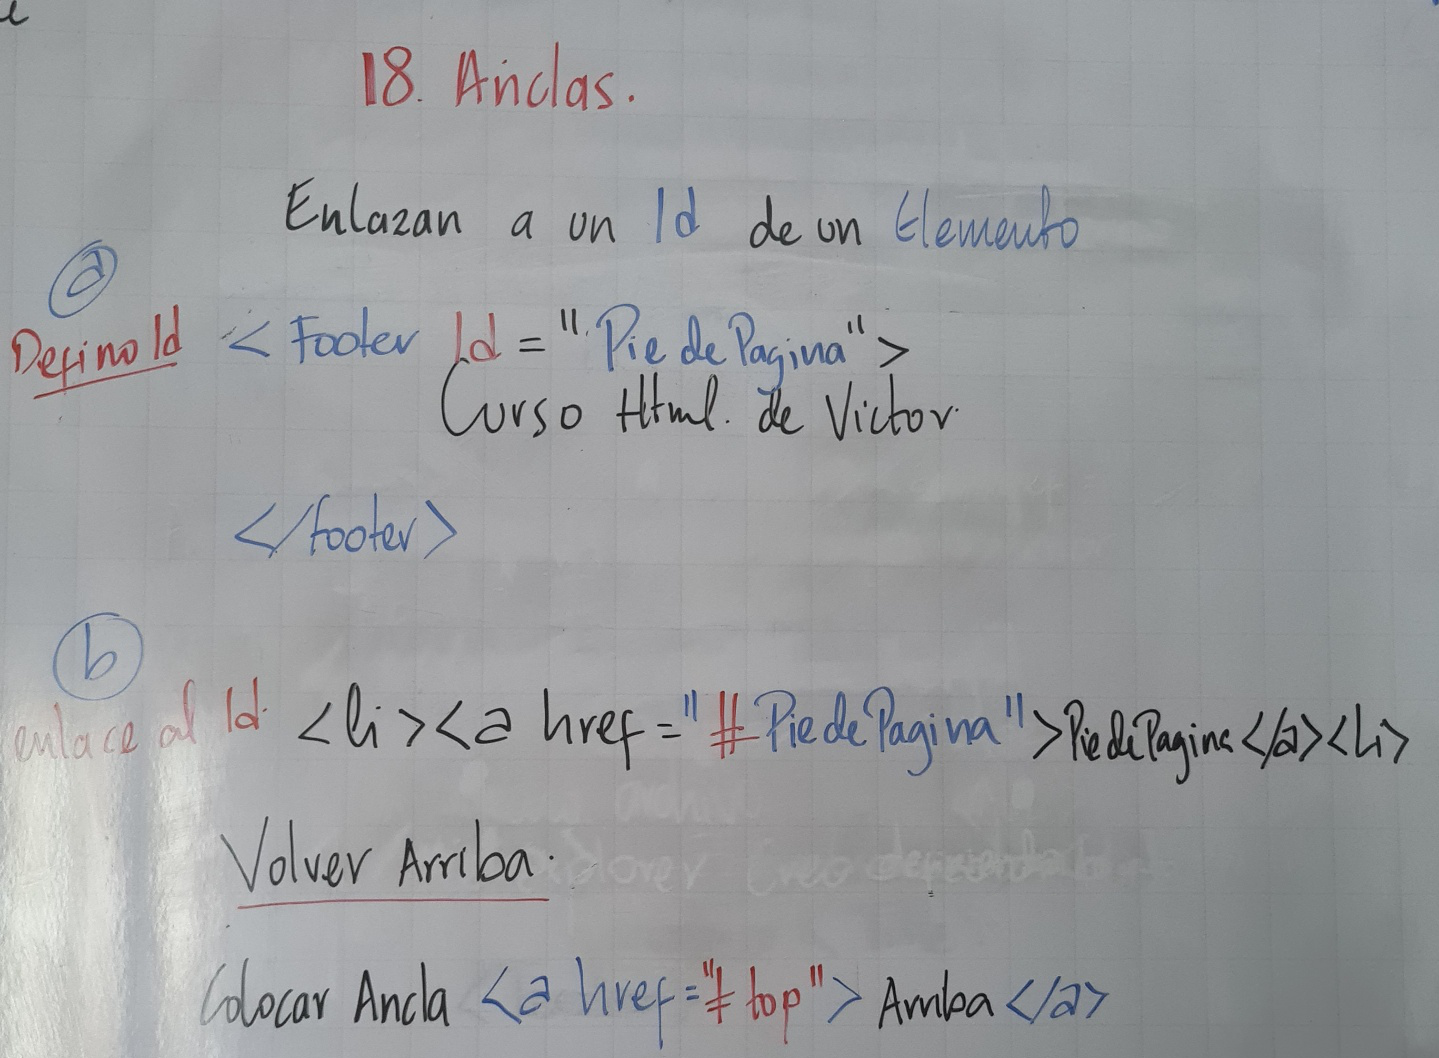 18. Anclas.
Enlazan a un Id de un Elemento
a
Defino Id <Footer Id = "PiedePagina">
Curso Html. de Victor.
</footer>
b
enlace al Id. <li><a href="#PiedePagina">PiedePagina</a><li>
Volver Arriba.
Colocar Ancla <a href="#top"> Arriba </a>